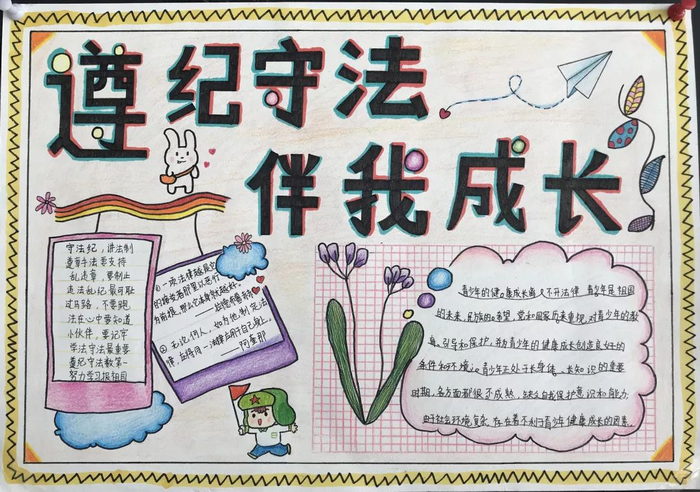 遵纪守法
伴我成长
守法纪，讲法制
遵章守法要支持
乱走章，要制止
走法乱纪最可耻
过马路，不要跑
法在心中要知道
小伙伴，要记牢
学法守法最重要
遵纪守法数第一
努力学习报祖国
①一项法律越是在
的接受者那里以恶行
为前提，那么它本身就越好。
②无论何人，如为他人制定法
律，应将同一法律应用于自己身上。
——阿奎那
青少年的健康成长离不开法律，青少年是祖国
的未来，民族的希望，党和国家历来重视对青少年的教
育、引导和保护，并为青少年的健康成长创造良好的
条件和环境。青少年正处于长身体、长知识的重要
时期，各方面都很不成熟，缺乏自我保护意识和能力，
由于社会环境复杂，存在着不利于青少年健康成长的因素。